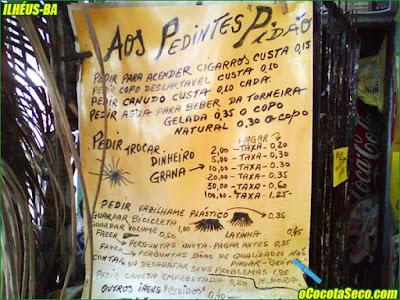 ILHÉUS-BA
AOS PEDINTES "PIDÃO"
PEDIR PARA ACENDER CIGARROS CUSTA 0,15
PEDIR COPO DESCARTÁVEL CUSTA 0,10
PEDIR CANUDO CUSTA 0,10 CADA.
PEDIR AGUA PARA BEBER DA TORNEIRA
GELADA 0,35 O COPO
NATURAL 0,30 O COPO
PEDIR TROCAR PAGAR
DINHEIRO 2,00 - TAXA - 0,20
GRANA 5,00 - TAXA - 0,30
10,00 - TAXA - 0,30
20,00 - TAXA - 0,35
50,00 - TAXA - 0,60
100,00 - TAXA - 1,25
PEDIR VAZILHAME PLÁSTICO 0,35
GUARDAR BICICLETA 1,00 LATINHA
GUARDAR VOLUME 0,50
FAZER PERGUNTAS IDIOTA - PAGAR ANTES 0,35
FAZER PERGUNTAS BOAS DE QUALIDADES NÃO
PAGAR - GRÁTIS
CONTAR OU DESABAFAR SEUS PROBLEMAS
PEDIR CANETA EMPRESTADA 0,20
OUTROS ITENS "PEDIDOS" 0,40
Coca-Cola
oCocotaSeco.com